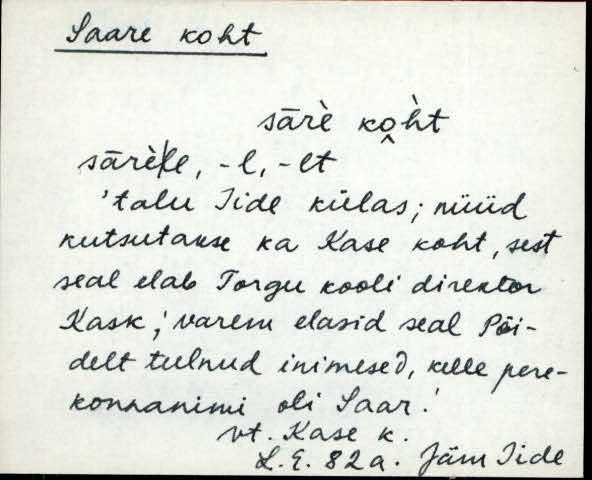 Saare koht
sārè ko̭h̀t
sārèle, -l, -lt
'talu Iide külas; nüüd
kutsutakse ka Kase koht, sest
seal elab Torgu kooli direktor
Kask; varem elasid seal Pöi-
delt tulnud inimesed, kelle pere-
konnanimi oli Saar.'
vt. Kase k.
L.E. 82a. Jäm Iide